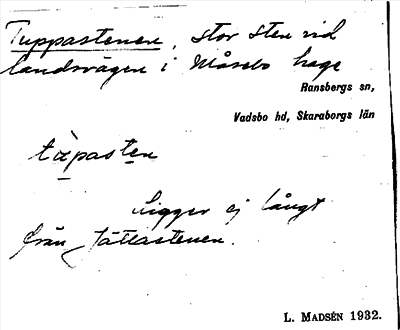 Tuppastenen, stor sten vid
landsvägen i Måsebo hage
Ransbergs sn,
Vadsbo hd, Skaraborgs län
tɷpastɛn
Ligger ej långt
från Jättastenen.
L. MADSÉN 1932.